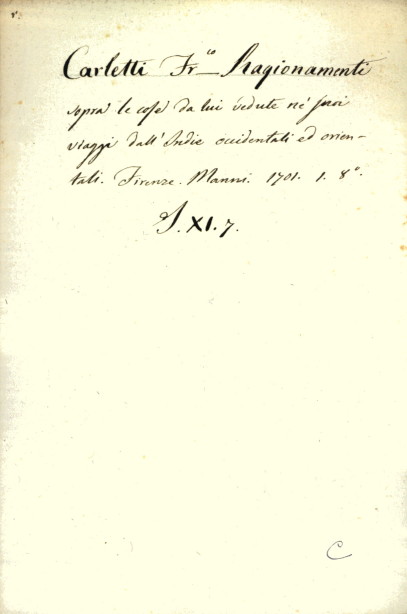 Carletti Fr.co Ragionamenti
sopra le cose da lui vedute ne' suoi
viaggi dall' Indie occidentali ed orien-
tali. Firenze. Manni. 1701. 1. 8°.
S. XI. 7.
C